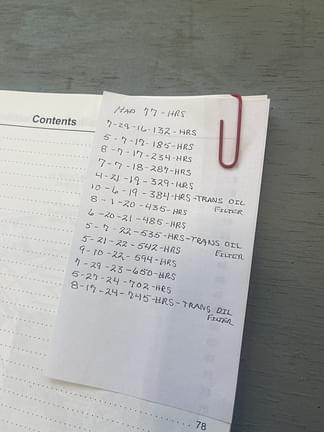 Contents
HAD 77-HRS
7-29-16-132-HRS
5-7-17-185-HRS
8-7-17-234-HRS
7-7-18-287-HRS
4-21-19-329-HRS
10-6-19-384-HRS-TRANS OIL
FILTER
8-1-20-435-HRS
6-20-21-485-HRS
5-7-22-535-HRS-TRANS OIL
FILTER
5-21-22-542-HRS
9-10-22-594-HRS
7-29-23-650-HRS
5-27-24-702-HRS
8-17-24-745-HRS-TRANS OIL
FILTER
78